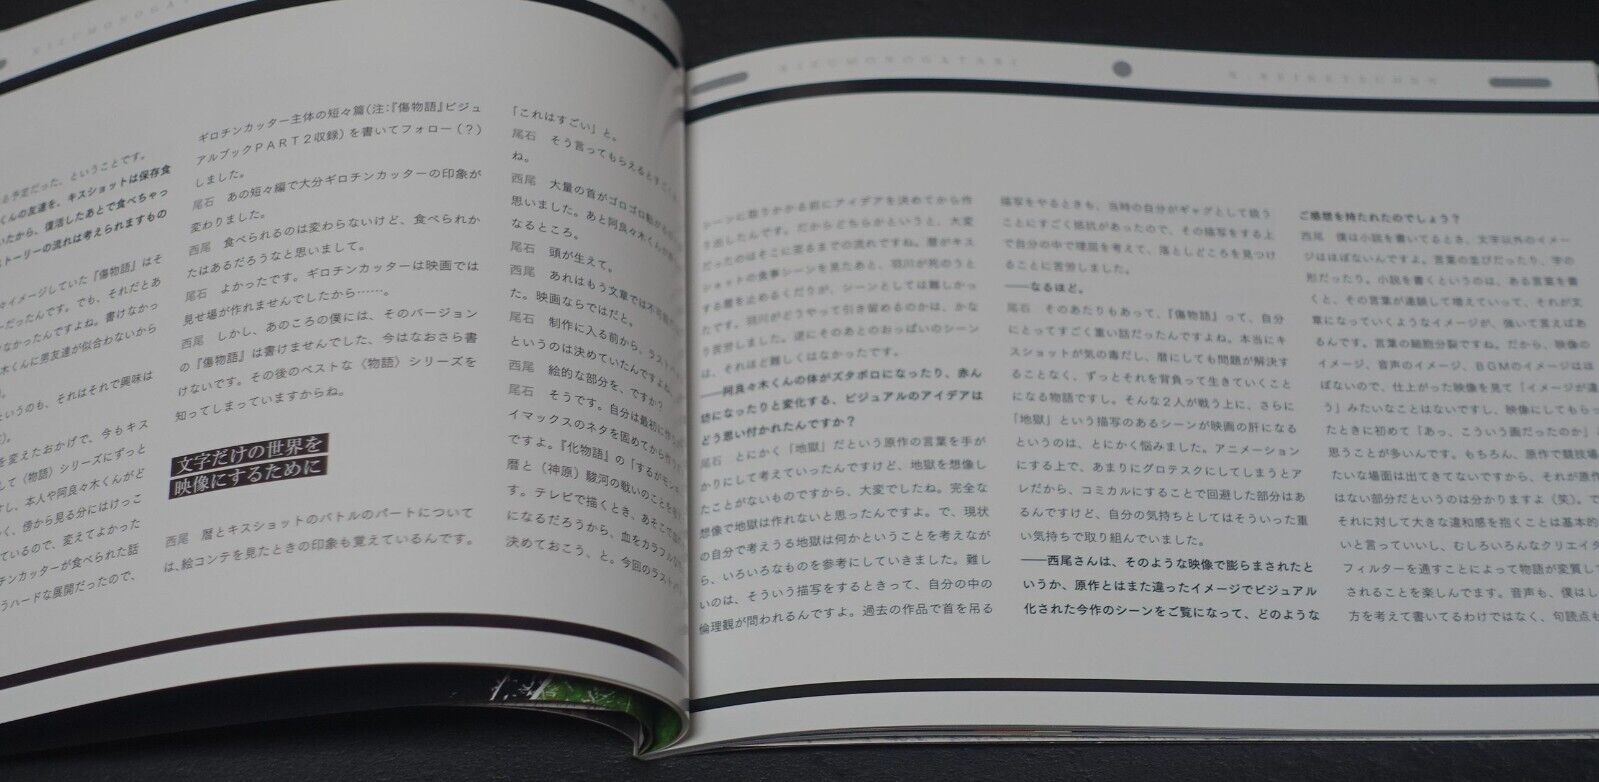 KIZUMONOGATARI
る予定だった、ということです。
くんの友達を、キスショットは保存食
いたから、復活したあとで食べちゃっ
ストーリーの流れは考えられますもの
イメージしていた『傷物語』はそ
だったんです。でも、それだとあ
なかったんですよね。書けなかっ
木くんに男友達が似合わないから
というのも、それはそれで興味は
を変えたおかげで、今もキス
して〈物語〉シリーズにずっと
すし、本人や阿良々木くんがど
く、傍から見る分にはけっこ
ているので、変えてよかった
チンカッターが食べられた話
うハードな展開だったので、
ギロチンカッター主体の短々篇(注:『傷物語』ビジュ
アルブックPART2収録)を書いてフォロー(?)
しました。
尾石　あの短々編で大分ギロチンカッターの印象が
変わりました。
西尾　食べられるのは変わらないけど、食べられか
たはあるだろうなと思いまして。
尾石　よかったです。ギロチンカッターは映画では
見せ場が作れませんでしたから……。
西尾　しかし、あのころの僕には、そのバージョン
の『傷物語』は書けませんでした、今はなおさら書
けないです。その後のベストな〈物語〉シリーズを
知ってしまっていますからね。
文字だけの世界を
映像にするために
西尾　暦とキスショットのバトルのパートについて
は、絵コンテを見たときの印象も覚えているんです。
「これはすごい」と。
尾石　そう言ってもらえるとすごく
ね。
西尾　大量の首がゴロゴロ転がる
思いました。あと阿良々木くんが
なるところ。
尾石　頭が生えて。
西尾　あれはもう文章では不可能
た。映画ならではだと。
尾石　制作に入る前から、ラスト
というのは決めていたんですよね
西尾　絵的な部分を、ですか?
尾石　そうです。自分は最初に
イマックスのネタを固めてから
ですよ。『化物語』の「するがモン
暦と(神原)駿河の戦いのことを
す。テレビで描くとき、あそこで
になるだろうから、血をカラフル
決めておこう、と。今回のラスト
KIZUMONOGATARI
シーンに取りかかる前にアイデアを決めてから作
り出したんです。だからどちらかというと、大変
だったのはそこに至るまでの流れですね。暦がキス
ショットの食事シーンを見たあと、羽川が死のうと
する暦を止めるくだりが、シーンとしては難しかっ
たです。羽川がどうやって引き留めるのかは、かな
り苦労しました。逆にそのあとのおっぱいのシーン
は、それほど難しくはなかったです。
――阿良々木くんの体がズタボロになったり、赤ん
坊になったりと変化する、ビジュアルのアイデアは
どう思い付かれたんですか?
尾石　とにかく「地獄」だという原作の言葉を手が
かりにして考えていったんですけど、地獄を想像し
たことがないものですから、大変でしたね。完全な
想像で地獄は作れないと思ったんですよ。で、現状
の自分で考えうる地獄は何かということを考えなが
ら、いろいろなものを参考にしていきました。難し
いのは、そういう描写をするときって、自分の中の
倫理観が問われるんですよ。過去の作品で首を吊る
描写をやるときも、当時の自分がギャグとして扱う
ことにすごく抵抗があったので、その描写をする上
で自分の中で理屈を考えて、落としどころを見つけ
ることに苦労しました。
――なるほど。
尾石　そのあたりもあって、『傷物語』って、自分
にとってすごく重い話だったんですよね。本当にキ
スショットが気の毒だし、暦にしても問題が解決す
ることなく、ずっとそれを背負って生きていくこと
になる物語ですし。そんな2人が戦う上に、さらに
「地獄」という描写のあるシーンが映画の肝になる
というのは、とにかく悩みました。アニメーション
にする上で、あまりにグロテスクにしてしまうとア
レだから、コミカルにすることで回避した部分はあ
るんですけど、自分の気持ちとしてはそういった重
い気持ちで取り組んでいました。
――西尾さんは、そのような映像で膨らまされたと
いうか、原作とはまた違ったイメージでビジュアル
化された今作のシーンをご覧になって、どのような
ご感想を持たれたのでしょう?
西尾　僕は小説を書いてるとき、文字以外のイメー
ジはほぼないんですよ。言葉の並びだったり、字の
形だったり。小説を書くというのは、ある言葉を書
くと、その言葉が連鎖して増えていって、それが文
章になっていくようなイメージが、強いて言えばあ
るんです。言葉の細胞分裂ですね。だから、映像の
イメージ、音声のイメージ、BGMのイメージはほ
ぼないので、仕上がった映像を見て「イメージが違
う」みたいなことはないですし、映像にしてもらっ
たときに初めて「あっ、こういう画だったのか」と
思うことが多いんです。もちろん、原作で競技場
たいな場面は出てきてないですから、それが原作
はない部分だというのは分かりますよ(笑)。で
それに対して大きな違和感を抱くことは基本的
いと言っていいし、むしろいろんなクリエイタ
フィルターを通すことによって物語が変質して
されることを楽しんでます。音声も、僕はし
方を考えて書いてるわけではなく、句読点も